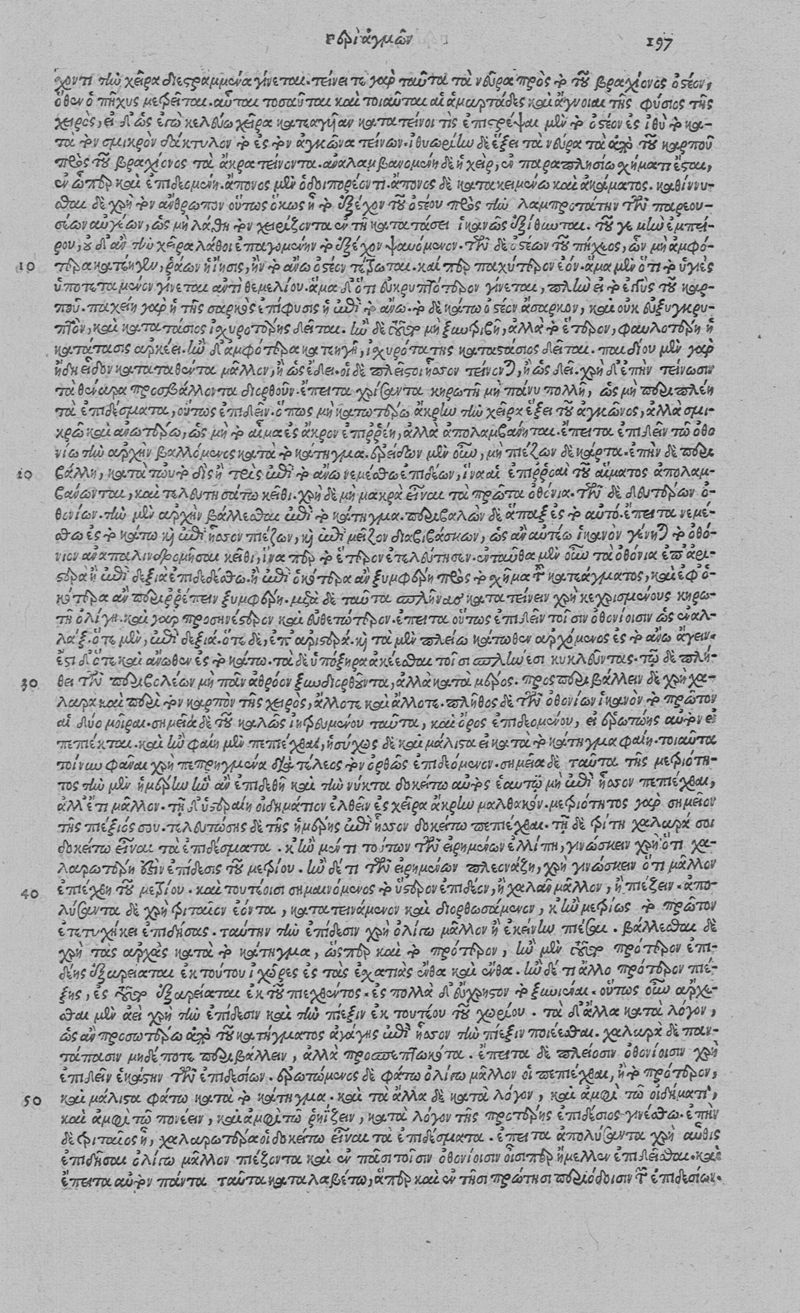 Περὶ ἀγμῶν 197
χοντι τὴν χεῖρα διεστραμμένα γίνεται. τείνει τε γὰρ ταῦτα τὰ νεῦρα πρὸς τὸ τοῦ βραχίονος ὀστέον,
ὅθεν ὁ πῆχυς μεφεῖται. αὗται τοσαῦται καὶ τοιαῦται αἱ ἁμαρτάδες καὶ ἄγνοιαι τῆς φύσιος τῆς
χειρὸς, εἰ δ' ὡς ἐγὼ κελεύω χεῖρα κατεαγῆαν κατατείνοι τις ἐπιστρέψαι μὲν τὸ ὀστέον ἐς ἰθὺ τὸ κα-
τὰ τὸν σμικρὸν δάκτυλον τὸ ἐς τὸν ἀγκῶνα τείνον. ἰθυωρίην δὲ ἕξει τὰ νεῦρα τὰ ἀπὸ τοῦ καρποῦ
πρὸς τοῦ βραχίονος τὰ ἄκρα τείνοντα. ἀναλαμβανομένη δὲ ἡ χεὶρ, ἐν παραπλησίῳ σχήματι ἔσται,
ἐν ᾧπερ καὶ ἐπιδεομένη. ἄπονος μὲν ὁδοιπορέοντι. ἄπονος δὲ κατακειμένῳ καὶ ἀκάματος. καθίννυ-
σθαι δὲ χρὴ τὸν ἄνθρωπον οὕτως ὅκως ᾖ τὸ ἐξέχον τοῦ ὀστέου πρὸς τὴν λαμπροτάτην τῶν παρεου-
σέων αὐγέων, ὡς μὴ λάθῃ τὸν χειρίζοντα ἐν τῇ κατατάσει ἱκανῶς ἐξίθυωται. τοῦ γε μὴν ἐμπεί-
ρου, οὐδ' ἂν τὴν χεῖρα λάθοι ἐπαγομένην τὸ ἐξέχον ψαυόμενον. τῶν δὲ ὀστέων τοῦ πήχεος, ὧν μὴ ἀμφό-
10 τερα κατέηγεν, ῥάων ἡ ἴησις, ἢν τὸ ἄνω ὀστέον τέτρωται. καί περ παχύτερον ἐόν. ἅμα μὲν ὅτι τὸ ὑγιὲς
ὑποτεταμένον γίνεται αὐτῇ θεμελίου. ἅμα δ' ὅτι εὐκρυπτότερον γίνεται, πλὴν εἰ τὸ ἐγγὺς τοῦ καρ-
ποῦ. παχείη γὰρ ἡ τῆς σαρκὸς ἐπίφυσις ἡ ἐπὶ τὸ ἄνω. τὸ δὲ κάτω ὀστέον ἄσαρκον, καὶ οὐκ εὐξυγκρυ-
πτὸν, καὶ κατατάσιος ἰσχυροτέρης δεῖται. ἢν δὲ τοῦτο μὴ ξυντριβῇ, ἀλλὰ τὸ ἕτερον, φαυλοτέρη ἡ
κατάτασις ἀρκέει. ἢν δ' ἀμφότερα κατεηγῇ, ἰσχυρότατης κατατάσιος δεῖται. παιδίου μὲν γὰρ
ἤδη εἶδον καταταθέντα μᾶλλον, ἢ ὡς ἔδει. οἱ δὲ πλεῖστοι ἧσσον τείνονται, ἢ ὡς δεῖ. χρὴ δ' ἐπὴν τείνωσιν
τὰ θέναρα προσβάλλοντα διορθοῦν. ἔπειτα χρίσαντα κηρωτῇ μὴ πάνυ πολλῇ, ὡς μὴ περιπλέῃ
τὰ ἐπιδέσματα, οὕτως ἐπιδεῖν. ὅπως μὴ κατωτέρω ἄκρην τὴν χεῖρα ἕξει τοῦ ἀγκῶνος, ἀλλὰ σμι-
κρῷ καὶ ἀνωτέρω, ὡς μὴ τὸ αἷμα ἐς ἄκρον ἐπιρρέῃ, ἀλλὰ ἀπολαμβάνηται. ἔπειτα ἐπιδεῖν τῷ ὀθο-
νίῳ τὴν ἀρχὴν βαλλόμενος κατὰ τὸ κάτηγμα. ἐρείδων μὲν οὖν, μὴ πιέζων δὲ κάρτα. ἐπὴν δὲ περι-
20 βάλλῃ, κατὰ τωὐτὸ δὶς ἢ τρὶς ἐπὶ τὸ ἄνω νεμέσθω ἐπιδέων, ἵνα αἱ ἐπιρροαὶ τοῦ αἵματος ἀπολαμ-
βάνωνται, καὶ τελευτησάτω κεῖθι. χρὴ δὲ μὴ μακρὰ εἶναι τὰ πρῶτα ὀθόνια. τῶν δὲ δευτέρων ὀ-
θονίων. τὴν μὲν ἀρχὴν βάλλεσθαι ἐπὶ τὸ κάτηγμα. περιβαλὼν δὲ ἅπαξ ἐς τὸ αὐτό. ἔπειτα νεμέ-
σθω ἐς τὸ κάτω καὶ ἐπὶ ἧσσον πιέζων, καὶ ἐπὶ μεῖζον διαβιβάσκων, ὡς ἂν αὐτέῳ ἱκανὸν γένηται τὸ ὀθό-
νιον ἀναπαλινδρομῆσαι κεῖθι, ἵνα περ τὸ ἕτερον ἐτελεύτησεν. ἐνταῦθα μὲν οὖν τὰ ὀθόνια ἐπ' ἀρι-
στερὰ ἢ ἐπὶ δεξιὰ ἐπιδεδέσθω. ἢ ἐπὶ ὁκότερα ἂν ξυμφέρῃ πρὸς τὸ σχῆμα τοῦ κατεάγματος, καὶ ἐφ' ὁ-
κότερα ἂν περιρρέπειν ξυμφέρῃ. μετὰ δὲ ταῦτα σπλῆνας κατατείνειν χρὴ κεχρισμένους κηρω-
τῇ ὀλίγῃ. καὶ γὰρ προσηνέστερον καὶ εὐθετώτερον. ἔπειτα οὕτως ἐπιδεῖν τοῖσιν ὀθονίοισιν ὡς ἐναλ-
λάξ. ὁτὲ μὲν, ἐπὶ δεξιά. ὁτὲ δὲ, ἐπ' ἀριστερά. καὶ τὰ μὲν πλείω κάτωθεν ἀρχόμενος ἐς τὸ ἄνω ἄγειν.
ἔστι δ' ὅτε καὶ ἄνωθεν ἐς τὸ κάτω. τὰ δὲ ὑπόξηρα ἀκέεσθαι τοῖσι σπλήνεσι κυκλεῦντας. τῷ δὲ πλή-
30 θει τῶν περιβολέων μὴ πᾶν ἀθρόον ξυνδιορθοῦντα, ἀλλὰ κατὰ μέρος. προσπεριβάλλειν δὲ χρὴ χα-
λαρὰ καὶ περὶ τὸν καρπὸν τῆς χειρὸς, ἄλλοτε καὶ ἄλλοτε. πλῆθος δὲ τῶν ὀθονίων ἱκανὸν τὸ πρῶτον
αἱ δύο μοῖραι. σημεῖα δὲ τοῦ καλῶς ἰητρευμένου ταῦτα, καὶ ὅρος ἐπιδεομένου, εἰ ἐρωτῴης αὐτὸν εἰ
πεπίεκται. καὶ ἢν φαίη μὲν πεπιέχθαι, ἡσύχως δὲ καὶ μάλιστα εἰ κατὰ τὸ κάτηγμα φαίη. τοιαῦτα
τοίνυν φάναι χρὴ πεπρηγμένα διὰ τέλεος τὸν ὀρθῶς ἐπιδεόμενον. σημεῖα δὲ ταῦτα τῆς μετριότη-
τος τὴν μὲν ἡμέρην ἣν ἂν ἐπιδεθῇ καὶ τὴν νύκτα δοκείτω αὐτὸς ἑωυτῷ μὴ ἐπὶ ἧσσον πεπιέχθαι,
ἀλλ' ἔτι μᾶλλον. τῇ δ' ὑστεραίῃ οἰδημάτιον ἐλθεῖν ἐς χεῖρα ἄκρην μαλθακόν. μετριότητος γὰρ σημεῖον
τῆς πιέξιός σου. τελευτώσης δὲ τῆς ἡμέρης ἐπὶ ἧσσον δοκείτω πεπιέχθαι. τῇ δὲ τρίτῃ χαλαρά σοι
δοκείτω εἶναι τὰ ἐπιδέσματα. κἢν μέν τι τούτων τῶν εἰρημένων ἐλλίπῃ, γινώσκειν χρὴ ὅτι χα-
λαρωτέρη ἐστὶν ἐπίδεσις τοῦ μετρίου. ἢν δέ τι τῶν εἰρημένων πλεονάζῃ, χρὴ γινώσκειν ὅτι μᾶλλον
40 ἐπιέχθη τοῦ μετρίου. καὶ τουτέοισι σημαινόμενος τὸ ὕστερον ἐπιδέων, ἢ χαλᾶν μᾶλλον, ἢ πιέζειν. ἀπο-
λύσαντα δὲ χρὴ τριταῖον ἐόντα, κατατεινάμενον καὶ διορθωσάμενον, κἢν μετρίως τὸ πρῶτον
ἐτετυχήκει ἐπιδήσας. ταύτην τὴν ἐπίδεσιν χρὴ ὀλίγῳ μᾶλλον ἢ ἐκείνην πιέσαι. βάλλεσθαι δὲ
χρὴ τὰς ἀρχὰς κατὰ τὸ κάτηγμα, ὥσπερ καὶ τὸ πρότερον, ἢν μὲν τοῦτο πρότερον ἐπι-
δέῃς ἐξαρείαται ἐκ τούτου ἰχῶρες ἐς τὰς ἐσχατιὰς ἔνθα καὶ ἔνθα. ἢν δέ τι ἄλλο πρότερον πιέ-
ξῃς, ἐς τοῦτο ἐξαρείαται ἐκ τοῦ πιεχθέντος. ἐς πολλὰ δ' εὔχρηστον τὸ ξυνιέναι. οὕτως οὖν ἄρχε-
σθαι μὲν ἀεὶ χρὴ τὴν ἐπίδεσιν καὶ τὴν πίεξιν ἐκ τουτέου τοῦ χωρίου. τὰ δ' ἄλλα κατὰ λόγον,
ὡς ἂν προσωτέρω ἀπὸ τοῦ κατήγματος ἀγάγῃς ἐπὶ ἧσσον τὴν πίεξιν ποιέεσθαι. χαλαρὰ δὲ παν-
τάπασιν μηδέποτε περιβάλλειν, ἀλλὰ προσπεπτωκότα. ἔπειτα δὲ πλείοσιν ὀθονίοισιν χρὴ
ἐπιδεῖν ἑκάστην τῶν ἐπιδεσίων. ἐρωτώμενος δὲ φάτω ὀλίγῳ μᾶλλον οἱ πεπιέχθαι, ἢ τὸ πρότερον,
50 καὶ μάλιστα φάτω κατὰ τὸ κάτηγμα. καὶ τὰ ἄλλα δὲ κατὰ λόγον, καὶ ἀμφὶ τῷ οἰδήματι,
καὶ ἀμφὶ τῷ πονέειν, καὶ ἀμφὶ τῷ ῥηΐζειν, κατὰ λόγον τῆς προτέρης ἐπιδέσιος γινέσθω. ἐπὴν
δὲ τριταῖος ᾖ, χαλαρώτερά οἱ δοκείτω εἶναι τὰ ἐπιδέσματα. ἔπειτα ἀπολύσαντα χρὴ αὖθις
ἐπιδῆσαι ὀλίγῳ μᾶλλον πιέζοντα καὶ ἐν πᾶσι τοῖσιν ὀθονίοισιν οἷσιπερ ἤμελλεν ἐπιδεῖσθαι. καὶ
ἔπειτα αὐτὸν πάντα ταῦτα καταλαβέτω, ἅπερ καὶ ἐν τῇσι πρώτῃσι περιόδοισιν τῶν ἐπιδεσίων.